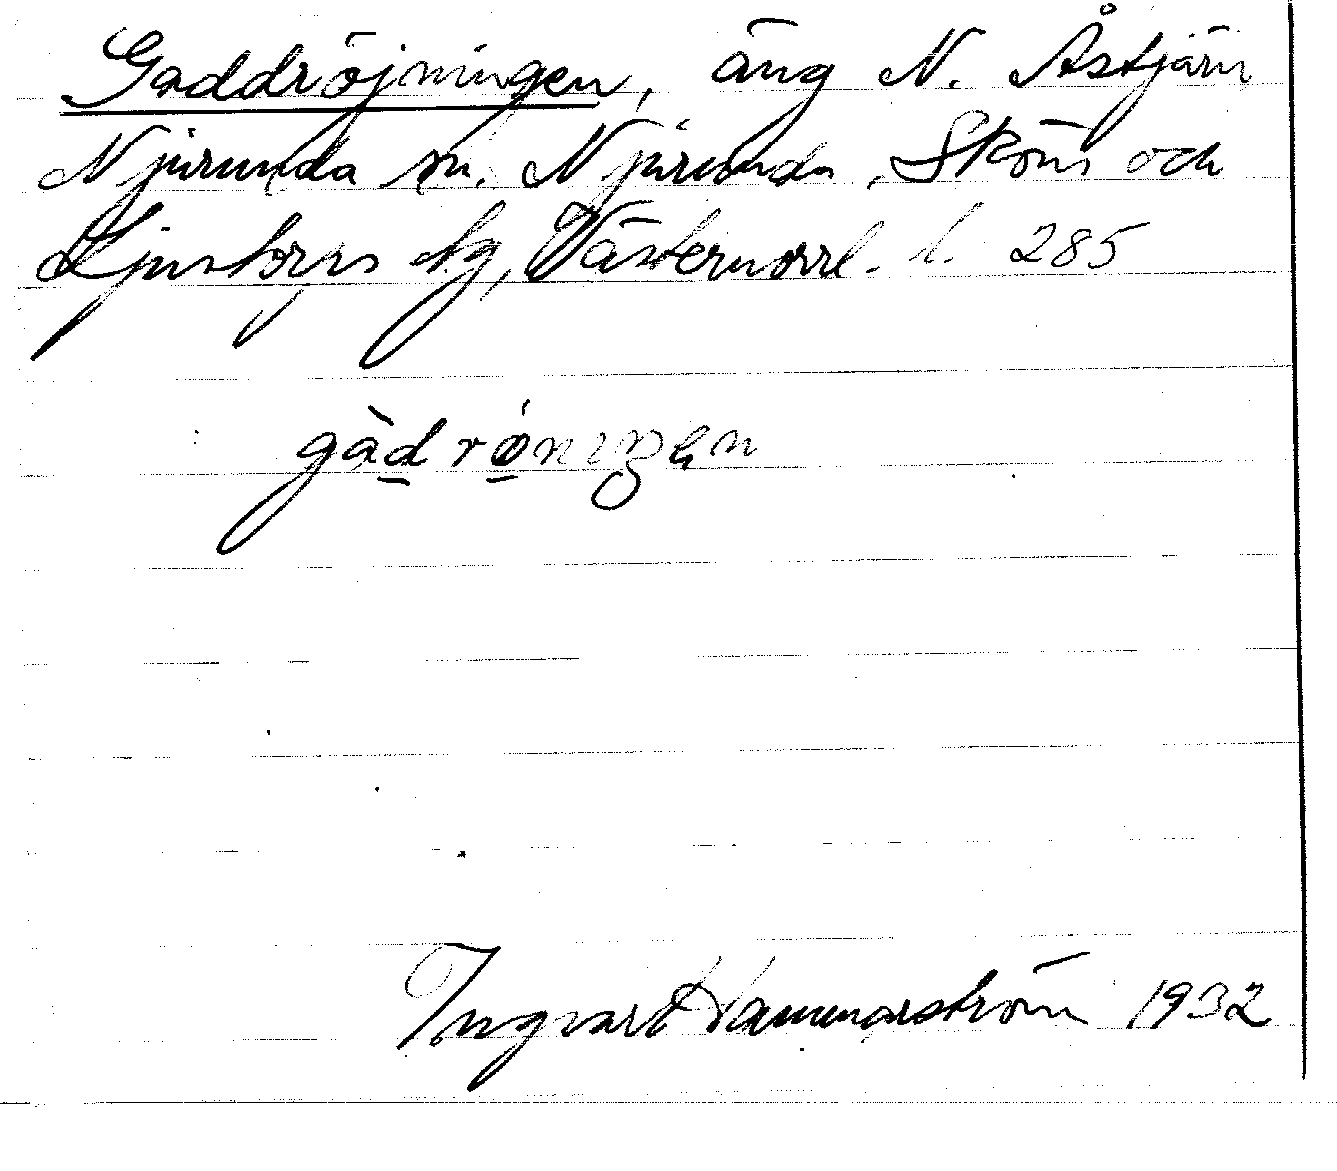 Gaddröjningen, äng N. Åstjärn
Njurunda sn. Njurunda, Sköns och
Ljustorps tg, Västernorrl. l. 285
gàd rǿnıŋen
Ingvart Hammarström 1932